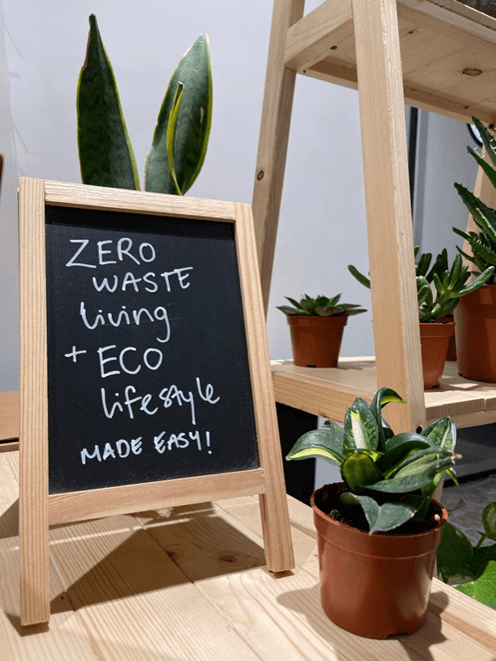 ZERO
WASTE
living
+ ECO
lifestyle
MADE EASY!